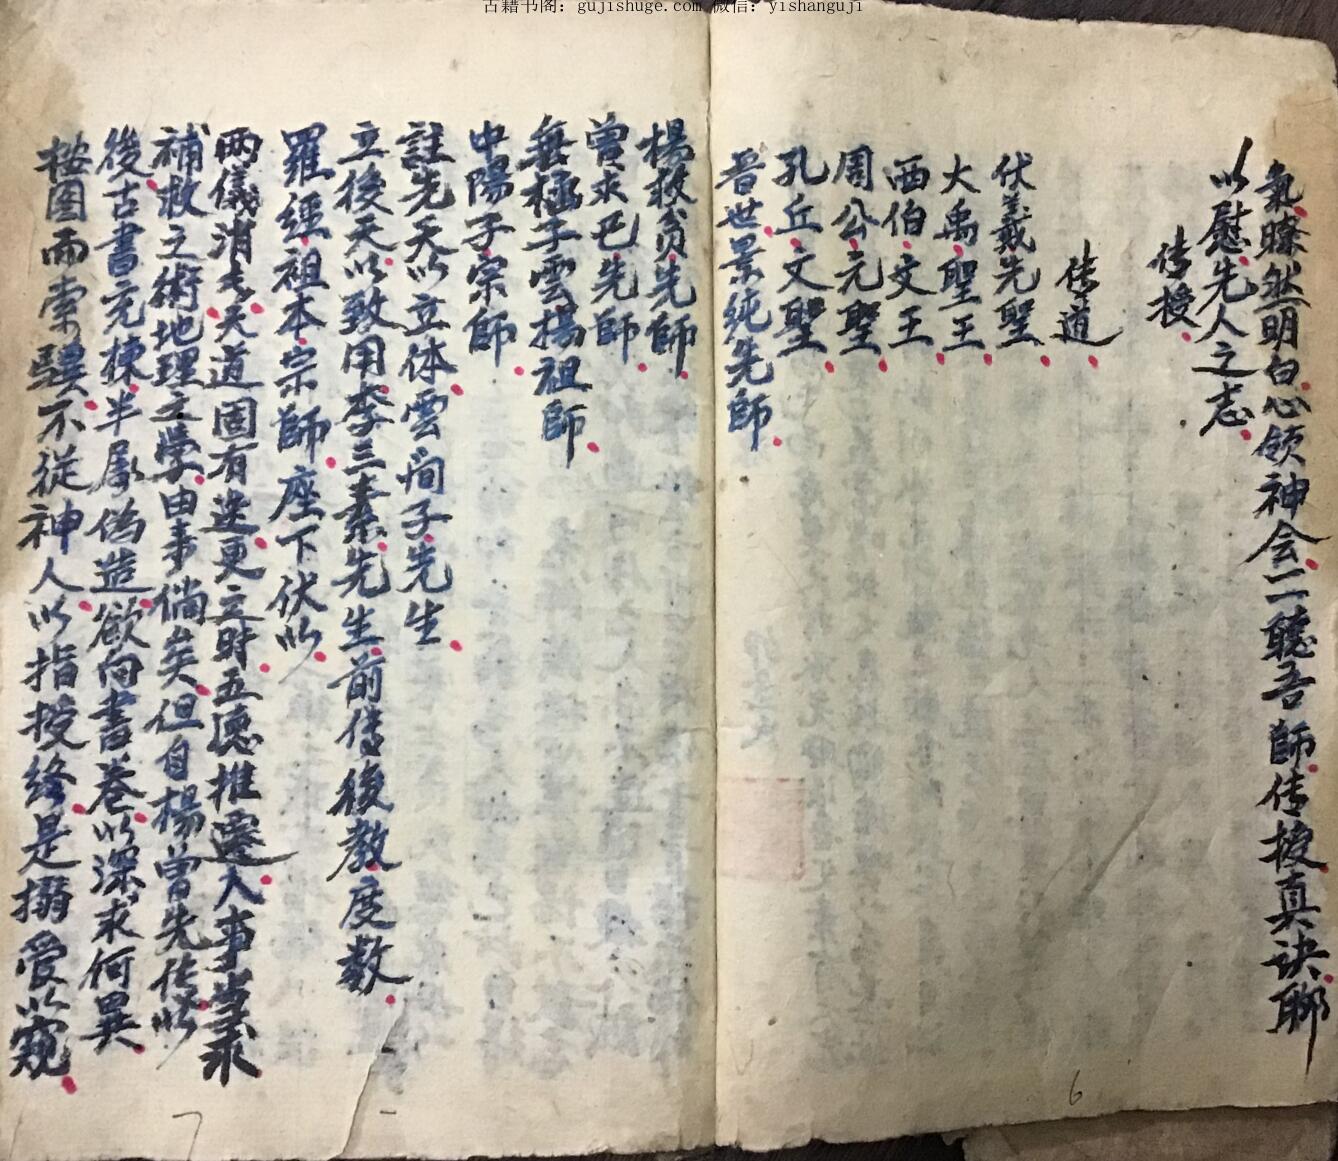 古籍书阁：gujishuge.com 微信：yishanguji
氣瞭然明白心领神会一一聽吾師传授真诀聊
以慰先人之志
传授
传道
伏羲先聖
大禹聖王
西伯文王
周公元聖
孔丘文聖
晋世景纯先師
楊救贫先師
曾求已先師
無極子雲楊祖師
中陽子宗師
註先天以立体雲间子先生
立後天以致用李三素先生前传後教度数
羅經祖本宗師座下伏以
兩儀消長天道固有迭更之時五德推遷人事当求
補救之術地理之學由事倘矣但自楊曾先传以
後古書充棟半屬偽造欲向書卷以深求何異
按图而索驥不從神人以指授终是搦爱以窺
6
7